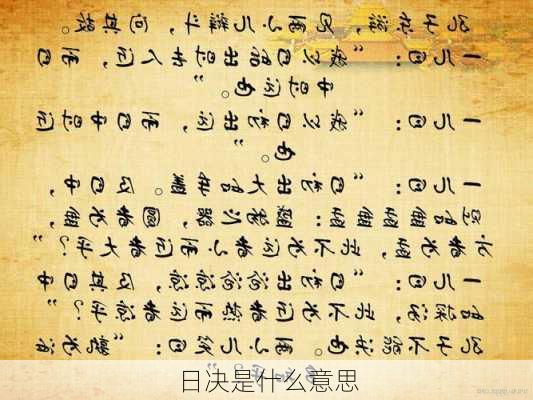 孔子东游，见两小儿辩斗，问其故。
一儿曰：“我以日始出时去人近，而日
中时远也。”
一儿曰：“我以日初出远，而日中时近
也。”
一儿曰：“日初出大如车盖。及日中，
此不为远者小而近者大乎？”
一儿曰：“日初出沧沧凉凉，及其日
如探汤，此不为近者热而远者凉乎？”
孔子不能决也。两小儿笑曰：“孰为汝
多知乎？”
日决是什么意思